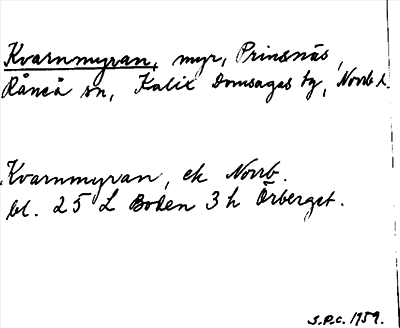 Kvarnmyran, myr, Prinsnäs,
Råneå sn, Kalix Domsagas tg, Norrb l.
Kvarnmyran, ek Norrb.
bl. 25 L Boden 3 h Örberget.
S.P.C. 1959.